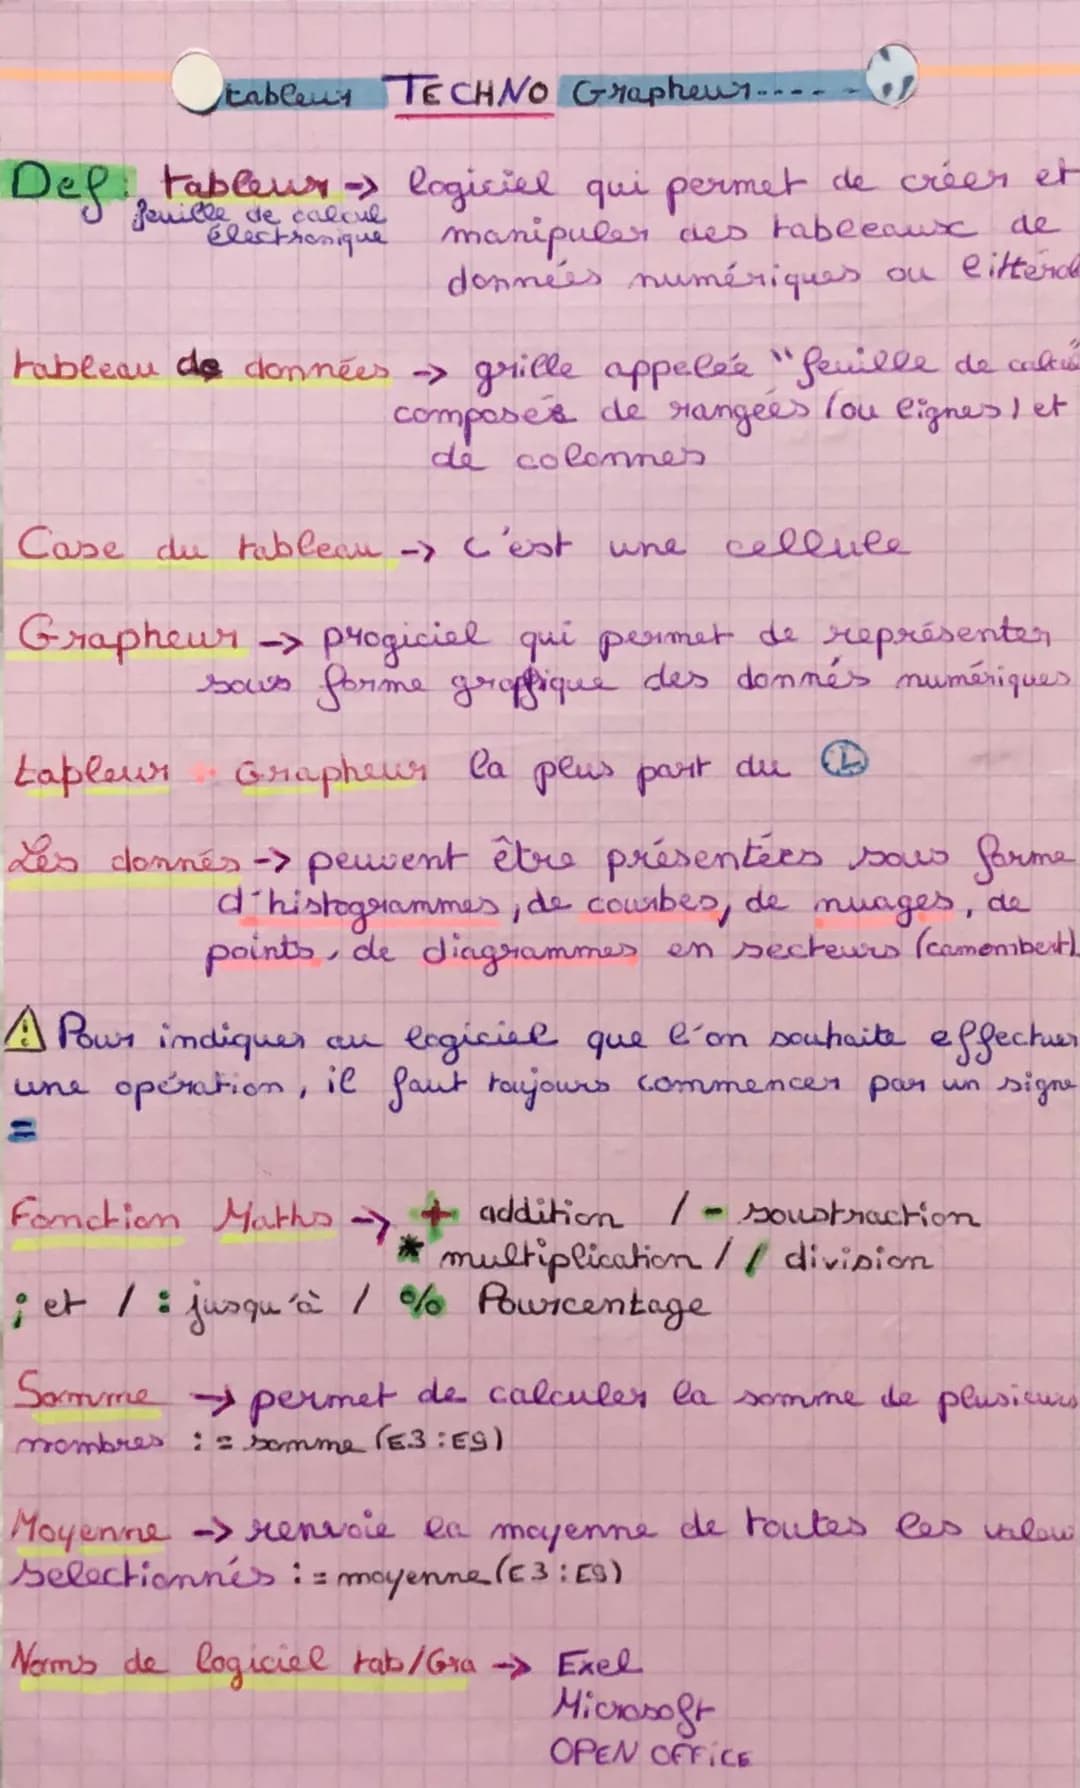 tableur TECHNO Grapheur....
Def: tableur -> logiciel qui permet de créer et
feuille de calcul
électronique
manipuler des tableaux de
données numériques ou
tableau de données -> grille appelée "feuille de
composés de rangées (ou lignes) et
de colonnes
Case du tableau -> C'est une cellule
Grapheur -> progiciel qui permet de représenter
sous forme graffique des donnés numériques
tapleur - Grapheur la plus part du
Les donnés -> peuvent être présentées sous forme
d'histogrammes, de courbes, de nuages, de
points, de diagrammes en secteurs (camembert)
Pour indiquer au logiciel que l'on souhaite effectuer
une opération, il faut toujours commencer par un signe
=
Fonction Maths -> + addition / - soustraction
* multiplication / / division
; et / : jusqu'à / % Pourcentage
Somme -> permet de calculer la somme de plusieurs
nombres : = somme (E3:E9)
Moyenne -> renvoie la moyenne de toutes les
selectionnés : = moyenne (E3:E9)
Noms de logiciel tab/Gra -> Exel
Microsoft
OPEN OFFICE